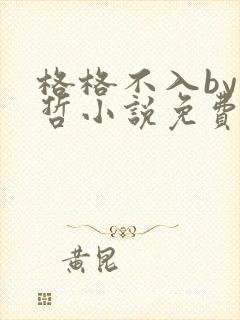 格格不入by
哲小說免費
黃昆